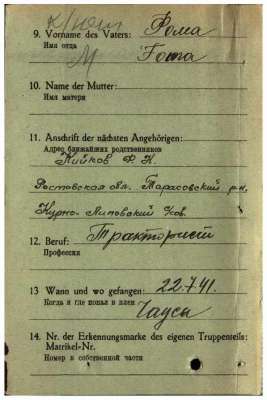 9. Vorname des Vaters: Фома
Имя отца
М Гота
10. Name der Mutter:
Имя матери
11. Anschrift der nächsten Angehörigen:
Адрес ближайших родственников
Ф. К.
Ростовская обл. Тарасовский р-н.
Курно-Липовский
12. Beruf: Тракторист
Профессия
13 Wann und wo gefangen: 22.7.41.
Когда и где попал в плен
Чаусы
14. Nr. der Erkennungsmarke des eigenen Truppenteils:
Matrikel-Nr.
Номер в собственной части